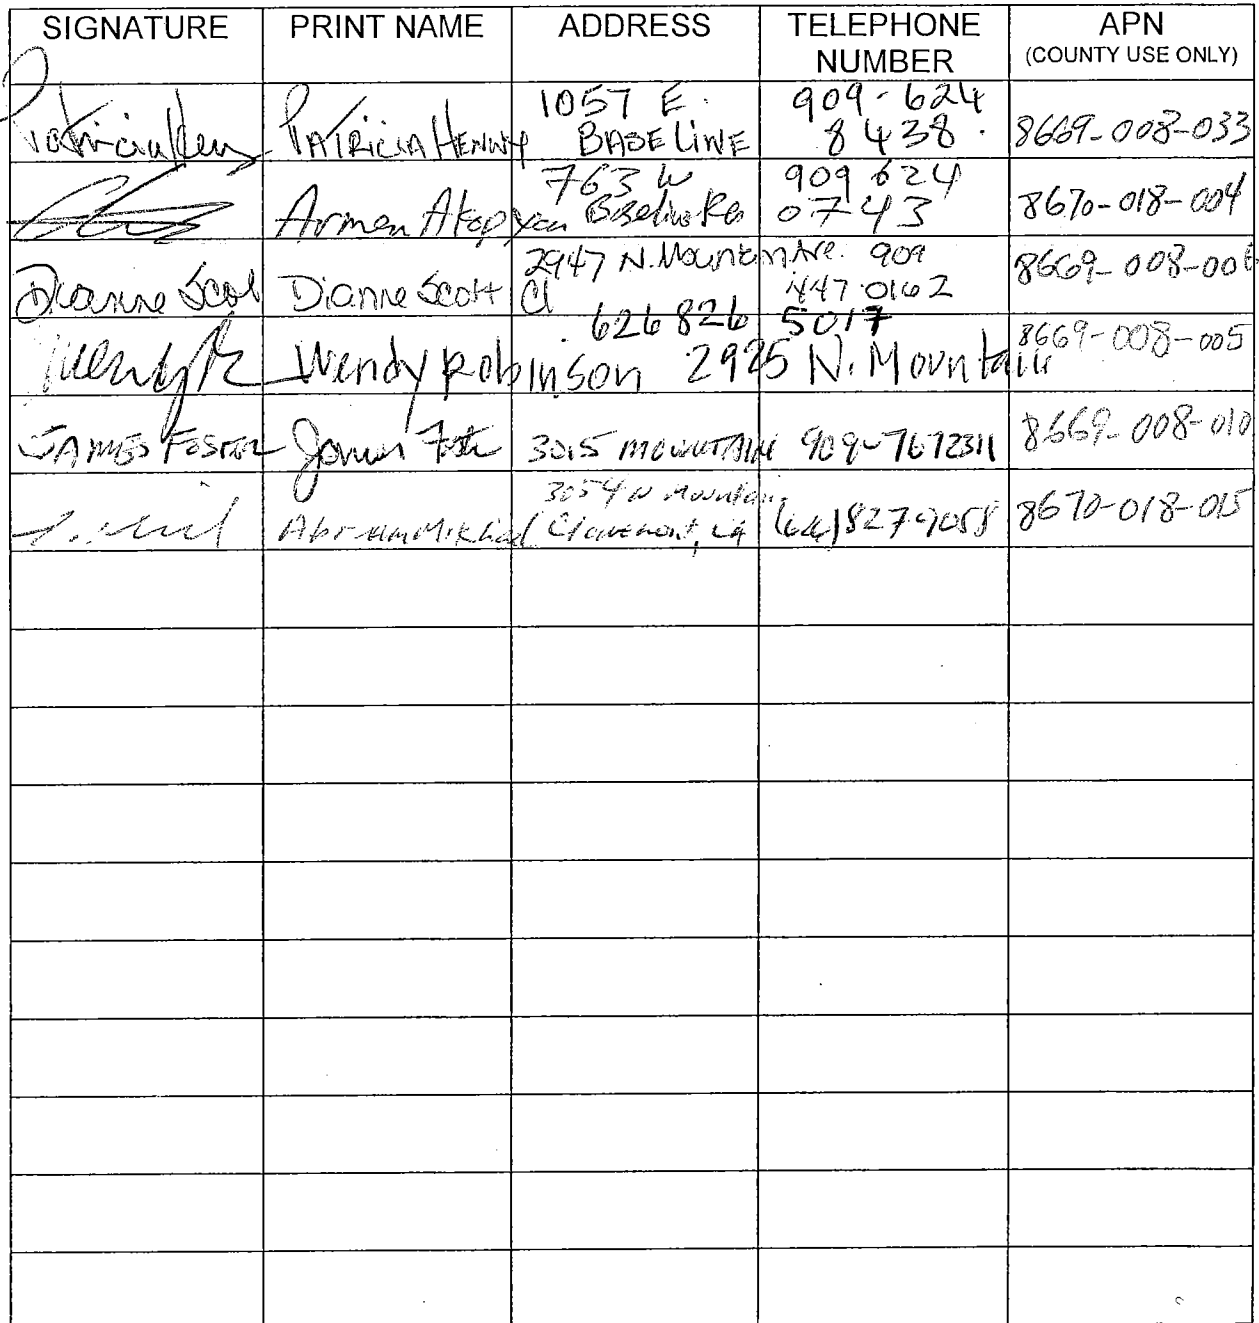 SIGNATURE PRINT NAME ADDRESS TELEPHONE NUMBER APN (COUNTY USE ONLY)
PATRICIA HENNY 1057 E. BASELINE 909-624 8438 8669-008-033
Armen Akopyan 763 W Baseline Rd 909 624 0743 8670-018-004
Dianne Scott Dianne Scott 2947 N. Mountain Ave. Cl 909 447 0162 8669-008-006
626 826 5017
Wendy R Wendy Robinson 2925 N. Mountain 8669-008-005
JAMES FOSTER James Foster 3015 MOUNTAIN 909-7672311 8669-008-010
3054 N Mountain Claremont, CA 8670-018-015